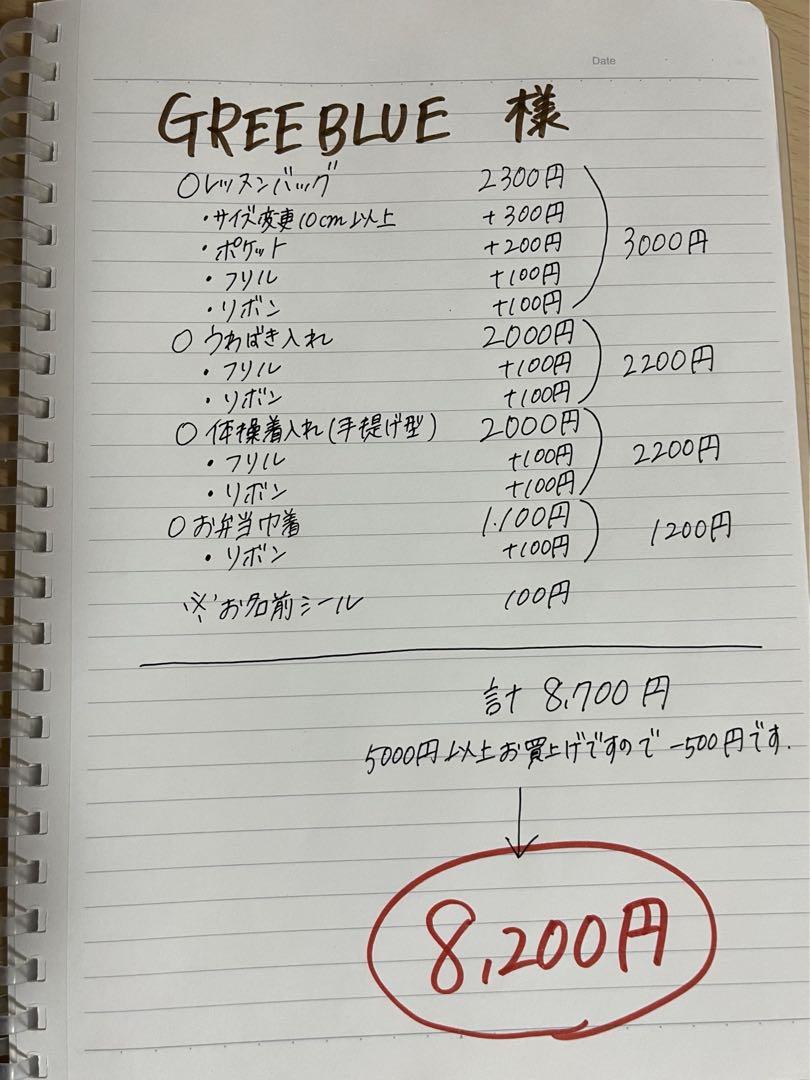 Date
GREEBLUE 様
○レッスンバッグ 2300円
・サイズ変更10cm以上 +300円
・ポケット +200円 3000円
・フリル +100円
・リボン +100円
○うわばき入れ 2000円
・フリル +100円 2200円
・リボン +100円
○体操着入れ(手提げ型) 2000円
・フリル +100円 2200円
・リボン +100円
○お弁当巾着 1.100円 1200円
・リボン +100円
※お名前シール 100円
計 8,700円
5000円以上お買上げですので-500円です.
↓
8,200円